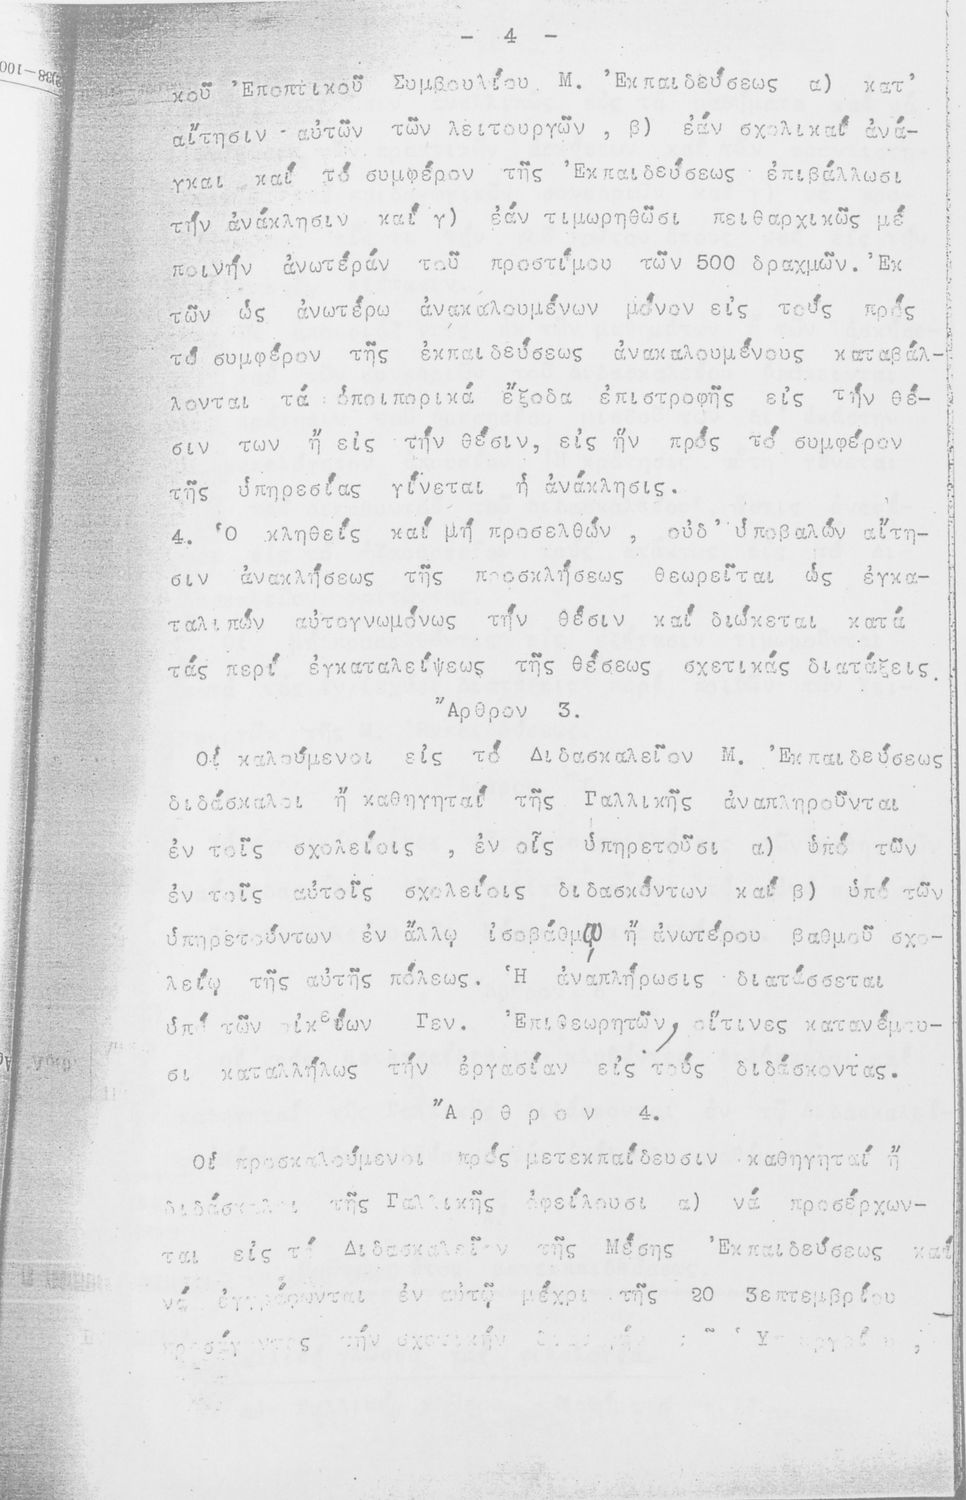 - 4 -
κοῦ Ἐποπτικοῦ Συμβουλίου Μ. Ἐκπαιδεύσεως α) κατ'
αἴτησιν αὐτῶν τῶν λειτουργῶν , β) ἐάν σχολικαί ἀνά-
γκαι καί τό συμφέρον τῆς Ἐκπαιδεύσεως ἐπιβάλλωσι
τήν ἀνάκλησιν καί γ) ἐάν τιμωρηθῶσι πειθαρχικῶς μέ
ποινήν ἀνωτέράν τοῦ προστίμου τῶν 500 δραχμῶν. Ἐκ
τῶν ὡς ἀνωτέρω ἀνακαλουμένων μόνον εἰς τούς πρός
τό συμφέρον τῆς ἐκπαιδεύσεως ἀνακαλουμένους καταβάλ-
λονται τά ὁποιπορικά ἔξοδα ἐπιστροφῆς εἰς τήν θέ-
σιν των ἤ εἰς τήν θέσιν, εἰς ἥν πρός τό συμφέρον
τῆς ὑπηρεσίας γίνεται ἡ ἀνάκλησις.
4. Ὁ κληθείς καί μή προσελθών , οὐδ' ὑποβαλών αἴτη-
σιν ἀνακλήσεως τῆς προσκλήσεως θεωρεῖται ὡς ἐγκα-
ταλιπών αὐτογνωμόνως τήν θέσιν καί διώκεται κατά
τάς περί ἐγκαταλείψεως τῆς θέσεως σχετικάς διατάξεις.
Ἄρθρον 3.
Οἱ καλούμενοι εἰς τό Διδασκαλεῖον Μ. Ἐκπαιδεύσεως
διδάσκαλοι ἤ καθηγηταί τῆς Γαλλικῆς ἀναπληροῦνται
ἐν τοῖς σχολείοις , ἐν οἷς ὑπηρετοῦσι α) ὑπό τῶν
ἐν τοῖς αὐτοῖς σχολείοις διδασκόντων καί β) ὑπό τῶν
ὑπηρετούντων ἐν ἄλλῳ ἰσοβάθμῳ ἤ ἀνωτέρου βαθμοῦ σχο-
λείῳ τῆς αὐτῆς πόλεως. Ἡ ἀναπλήρωσις διατάσσεται
ὑπό τῶν οἰκείων Γεν. Ἐπιθεωρητῶν, οἵτινες κατανέμου-
σι καταλλήλως τήν ἐργασίαν εἰς τούς διδάσκοντας.
Ἄ ρ θ ρ ο ν 4.
Οἱ προσκαλούμενοι πρός μετεκπαίδευσιν καθηγηταί ἤ
διδάσκαλοι τῆς Γαλλικῆς ὀφείλουσι α) νά προσέρχων-
ται εἰς τό Διδασκαλεῖον τῆς Μέσης Ἐκπαιδεύσεως καί
νά ἐγγράφωνται ἐν αὐτῷ μέχρι τῆς 20 3επτεμβρίου
προσάγοντες τήν σχετικήν Ὑπουργείου,